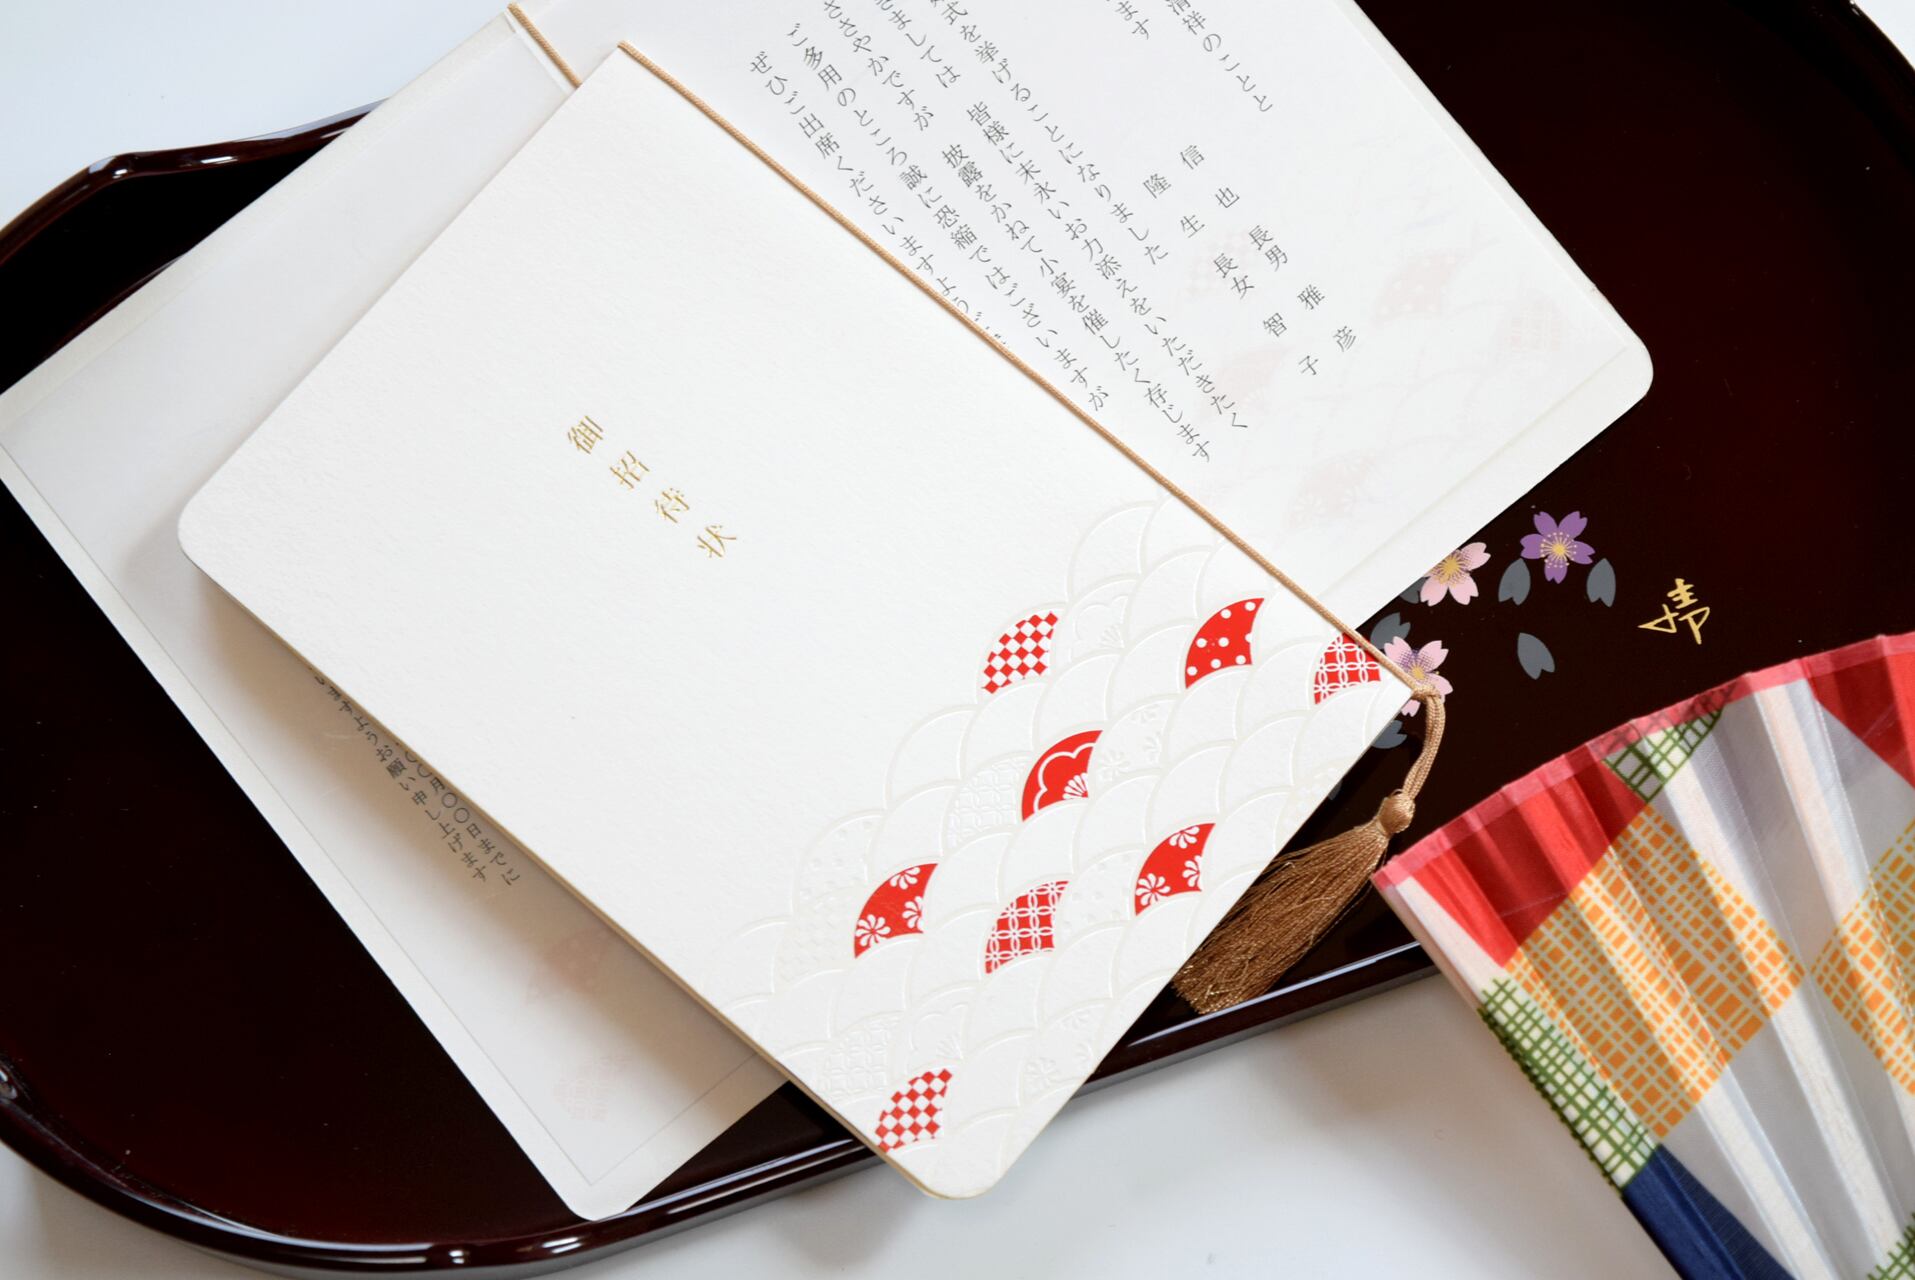 御招待状
清祥のことと
ます
信也 長男 雅彦
隆生 長女 智子
式を挙げることになりました
きましては 皆様に末永いお力添えをいただきたく
ささやかですが 披露をかねて小宴を催したく存じます
ご多用のところ誠に恐縮ではございますが
ぜひご出席くださいますよう
〇〇月〇〇日までに
ますようお願い申し上げます